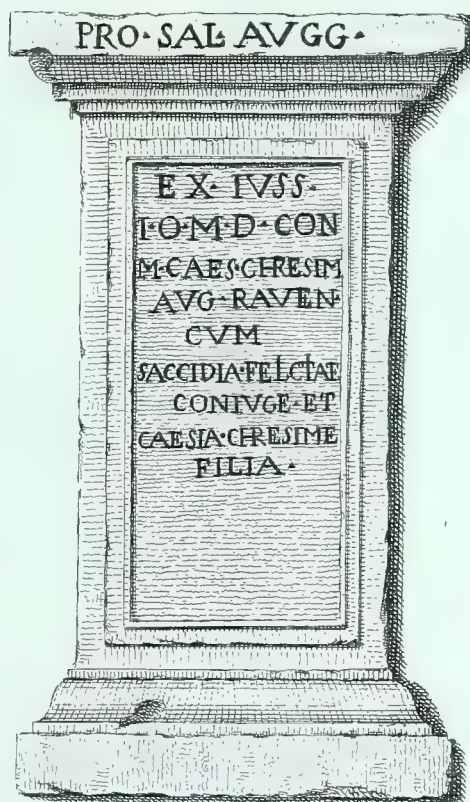 PRO·SAL·AVGG·
EX·IVSS·
I·O·M·D·CON
M·CAES·CHRESIM
AVG·RAVEN·
CVM
SACCIDIA·FELCTAE
CONIVGE·ET
CAESIA·CHRESIME
FILIA·